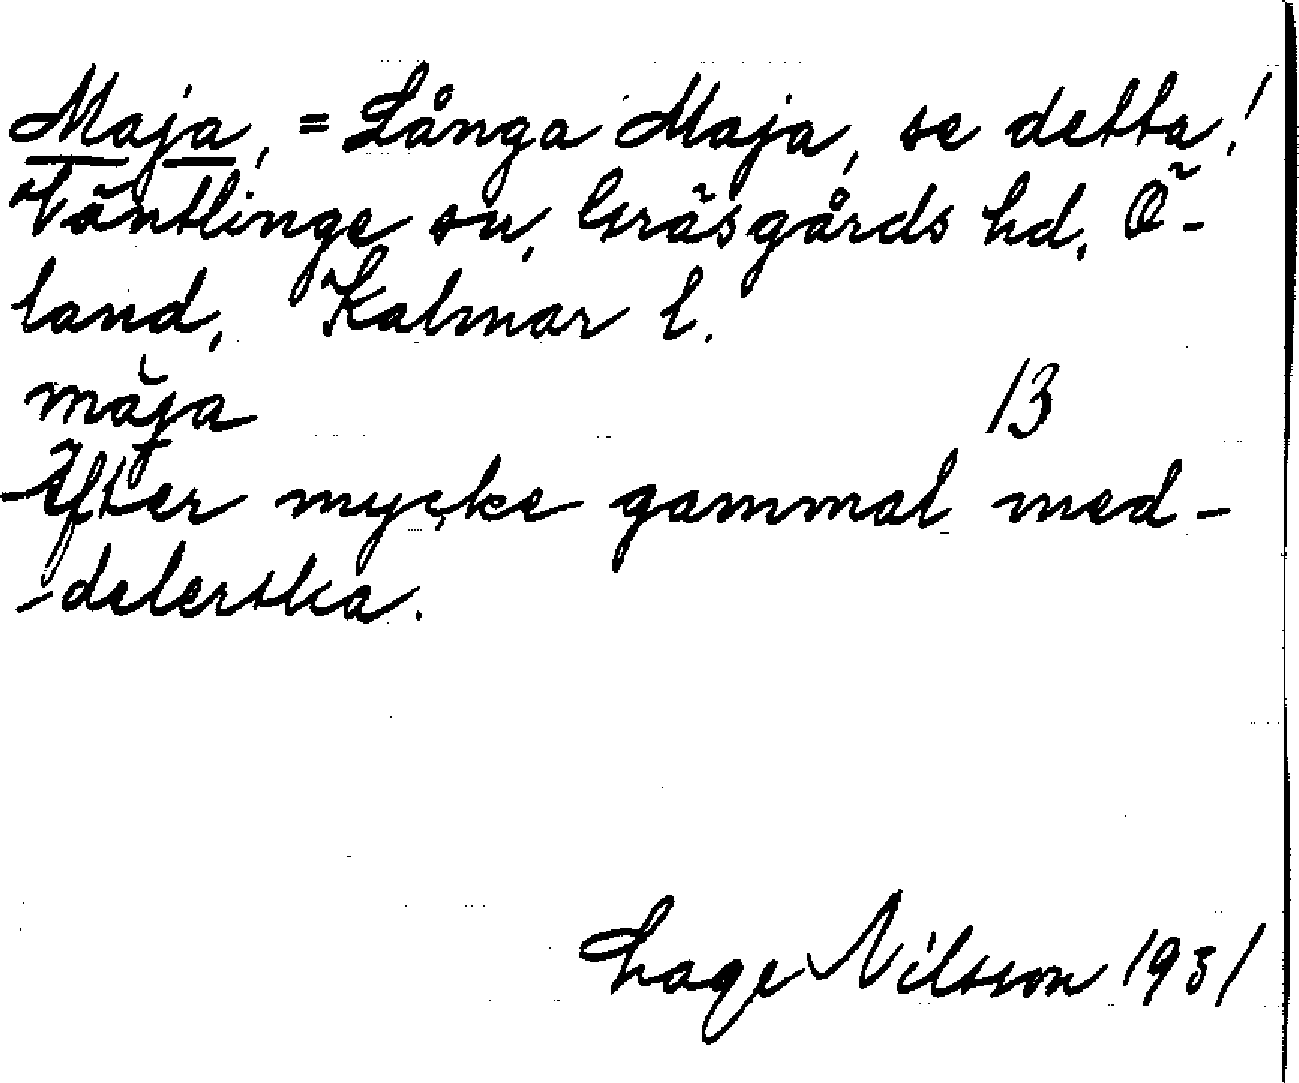 Maja, = Långa Maja, se detta!
Ventlinge sn, Gräsgårds hd, Ö-
land, Kalmar l.
măja 13
Efter mycke gammal med-
-delerska.
Lage Nilsson 1931